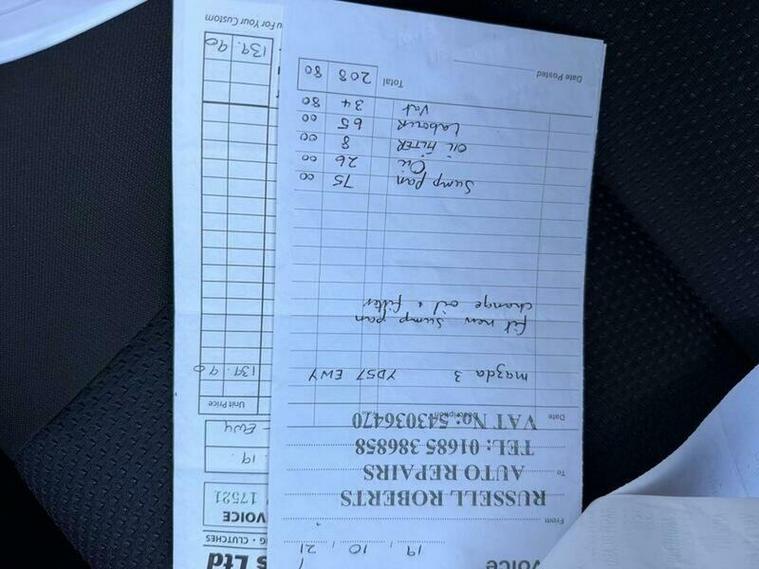 voice
19 / 10 / 21
From
RUSSELL ROBERTS
To
AUTO REPAIRS
TEL: 01685 386858
VAT No: 543036470
Date Description
mazda 3 YD57 EWY
fit new sump pan
change oil & filter
Sump pan 75 00
Oil 26 00
OIL FILTER 8 00
LABOUR 65 00
Vat 34 80
Date Posted Total 208 80
s Ltd
NG • CLUTCHES
VOICE
17521
19.
- EWY
Unit Price
139.90
139.90
u For Your Custom